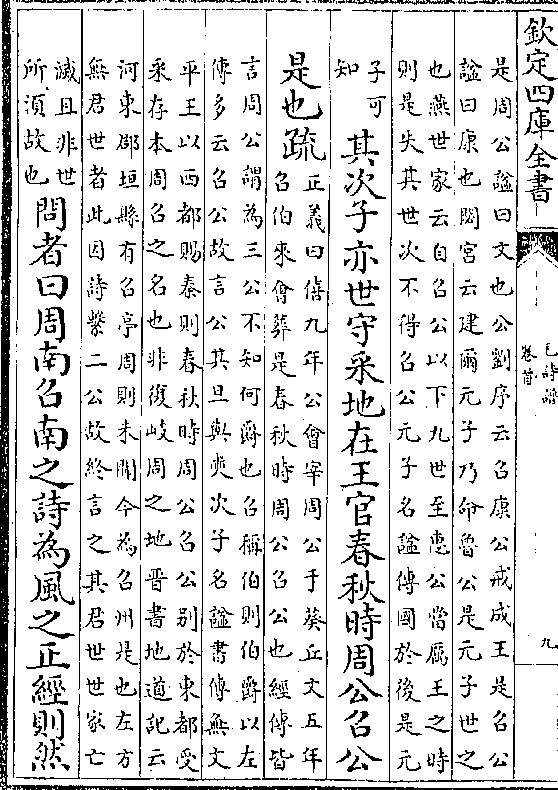 欽定四庫全書
毛詩譜
卷首
九
是周公諡曰文也公劉序云召康公戒成王是召公
諡曰康也閟宮云建爾元子乃命魯公是元子世之
也燕世家云自召公以下九世至惠公當厲王之時
則是失其世次不得召公元子名諡傳國於後是元
子可
知
其次子亦世守采地在王官春秋時周公召公
是也疏
正義曰僖九年公會宰周公于葵丘文五年
召伯來會葬是春秋時周公召公也經傳皆
言周公謂為三公不知何爵也召稱伯則伯爵以左
傳多云召公故言公其旦與奭次子名諡書傳無文
平王以西都賜秦則春秋時周公召公别於東都受
采存本周召之名也非復岐周之地晋書地道記云
河東郡垣縣有召亭周則未聞今為召州是也左方
無君世者此因詩繫二公故終言之其君世世家亡
滅且非世
所須故也
問者曰周南召南之詩為風之正經則然